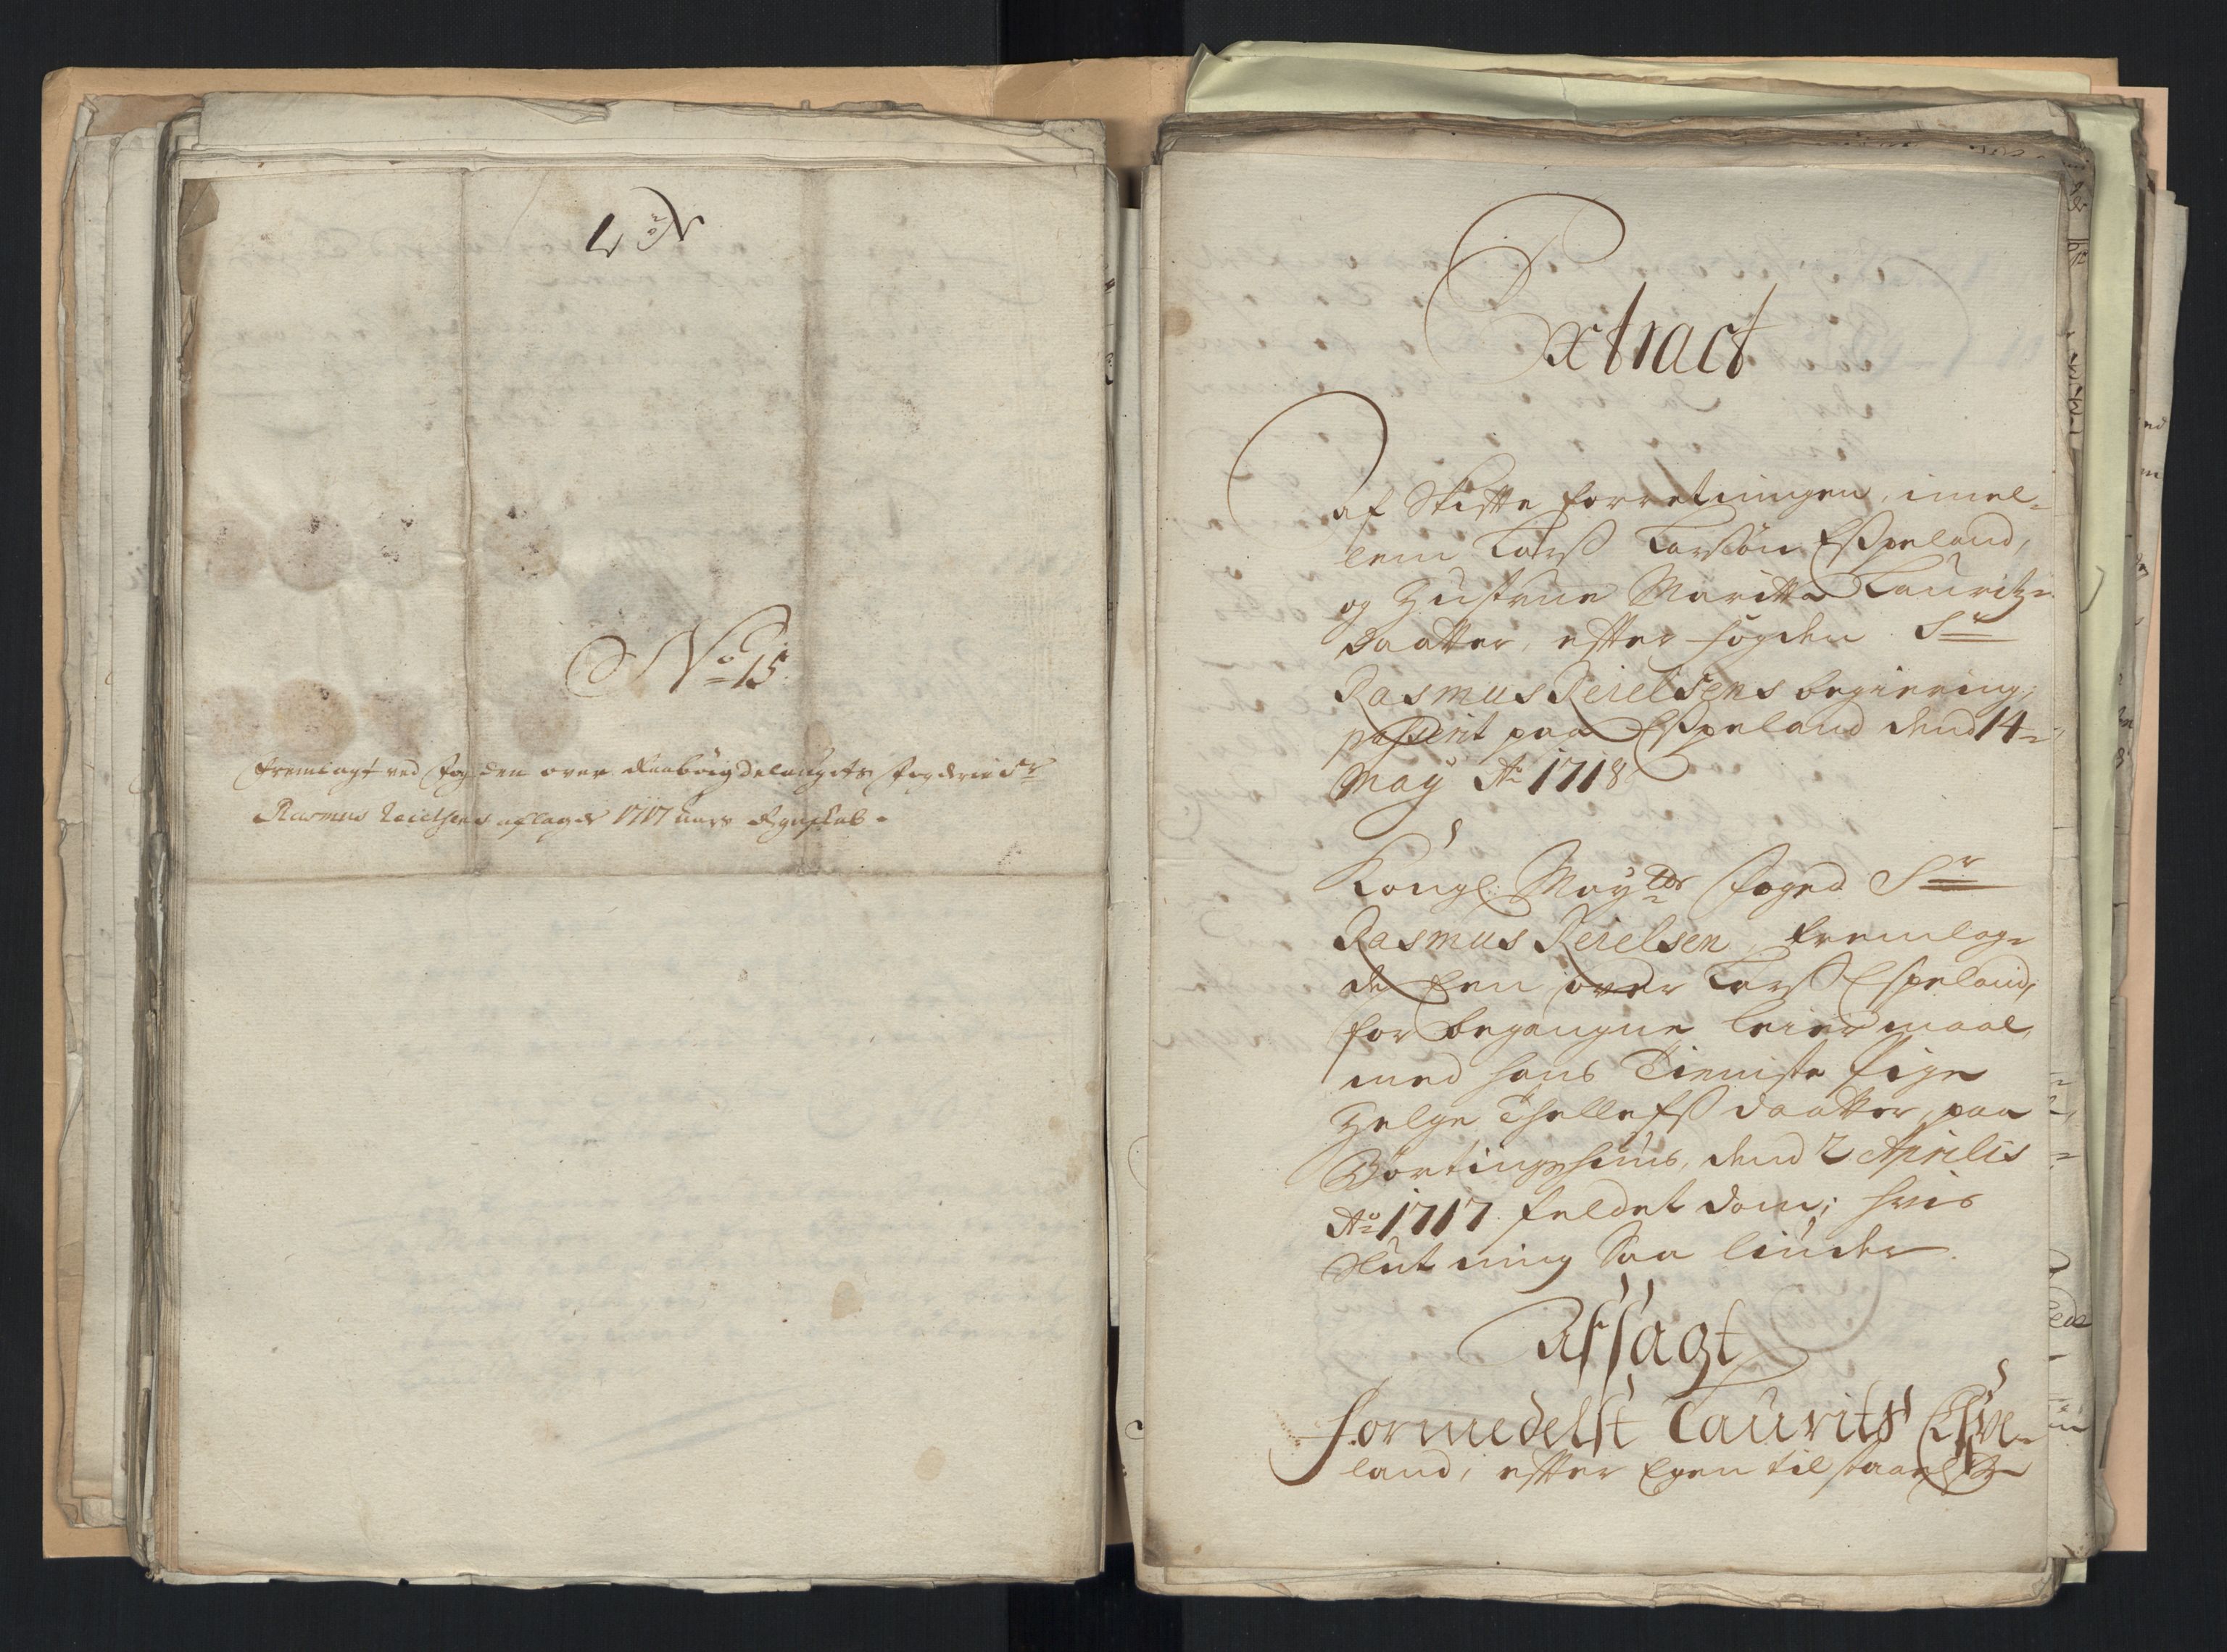 No 15.
fremlagt ved fogden over Raabøigdelaugets fogderie Sr
Rasmus Reielsens aflagde 1717 aars Regnskab.
Extract
af Skifte forretningen, imel-
lem Larß Larßøn Eßpeland,
og Hustrue Maritte Lauritz-
daatter, efter fogden Sr
Rasmus Reielsens begiering,
passerit paa Eßpeland dend 14
May Ao 1718
Kongl: Mayts foged Sr
Rasmus Reielsen, fremlag-
de Een over Larß Espeland,
for begangne leiermaal,
med hans Tieniste Pige
Helge Thellefß daatter, paa
Børtingshuus, dend 2 Aprilis
Ao 1717 feldet dom; hvis
Slutning Saa liuder
Afsagt
formedelst Laurits Espe-
land, efter Egen tilstaaelße